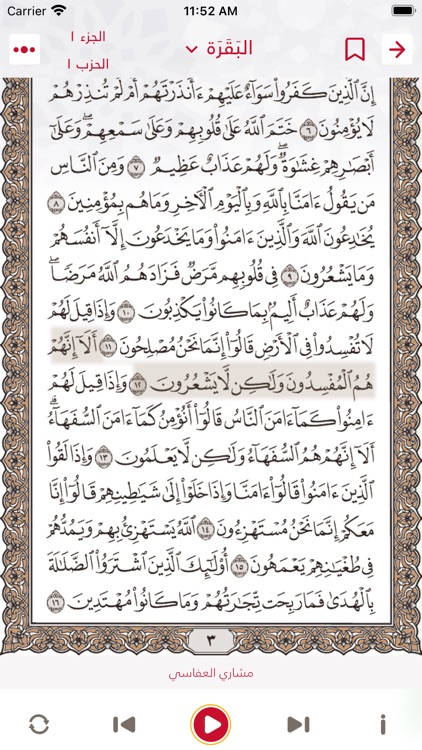 Carrier 11:52 AM
الجزء ١
الحزب ١
البَقَرَة
إِنَّ ٱلَّذِينَ كَفَرُوا۟ سَوَآءٌ عَلَيْهِمْ ءَأَنذَرْتَهُمْ أَمْ لَمْ تُنذِرْهُمْ
لَا يُؤْمِنُونَ ٦ خَتَمَ ٱللَّهُ عَلَىٰ قُلُوبِهِمْ وَعَلَىٰ سَمْعِهِمْ ۖ وَعَلَىٰٓ
أَبْصَٰرِهِمْ غِشَٰوَةٌ ۖ وَلَهُمْ عَذَابٌ عَظِيمٌ ٧ وَمِنَ ٱلنَّاسِ
مَن يَقُولُ ءَامَنَّا بِٱللَّهِ وَبِٱلْيَوْمِ ٱلْءَاخِرِ وَمَا هُم بِمُؤْمِنِينَ ٨
يُخَٰدِعُونَ ٱللَّهَ وَٱلَّذِينَ ءَامَنُوا۟ وَمَا يَخْدَعُونَ إِلَّآ أَنفُسَهُمْ
وَمَا يَشْعُرُونَ ٩ فِى قُلُوبِهِم مَّرَضٌ فَزَادَهُمُ ٱللَّهُ مَرَضًا ۖ
وَلَهُمْ عَذَابٌ أَلِيمٌۢ بِمَا كَانُوا۟ يَكْذِبُونَ ١٠ وَإِذَا قِيلَ لَهُمْ
لَا تُفْسِدُوا۟ فِى ٱلْأَرْضِ قَالُوٓا۟ إِنَّمَا نَحْنُ مُصْلِحُونَ ١١ أَلَآ إِنَّهُمْ
هُمُ ٱلْمُفْسِدُونَ وَلَٰكِن لَّا يَشْعُرُونَ ١٢ وَإِذَا قِيلَ لَهُمْ
ءَامِنُوا۟ كَمَآ ءَامَنَ ٱلنَّاسُ قَالُوٓا۟ أَنُؤْمِنُ كَمَآ ءَامَنَ ٱلسُّفَهَآءُ ۗ
أَلَآ إِنَّهُمْ هُمُ ٱلسُّفَهَآءُ وَلَٰكِن لَّا يَعْلَمُونَ ١٣ وَإِذَا لَقُوا۟
ٱلَّذِينَ ءَامَنُوا۟ قَالُوٓا۟ ءَامَنَّا وَإِذَا خَلَوْا۟ إِلَىٰ شَيَٰطِينِهِمْ قَالُوٓا۟ إِنَّا
مَعَكُمْ إِنَّمَا نَحْنُ مُسْتَهْزِءُونَ ١٤ ٱللَّهُ يَسْتَهْزِئُ بِهِمْ وَيَمُدُّهُمْ
فِى طُغْيَٰنِهِمْ يَعْمَهُونَ ١٥ أُو۟لَٰٓئِكَ ٱلَّذِينَ ٱشْتَرَوُا۟ ٱلضَّلَٰلَةَ
بِٱلْهُدَىٰ فَمَا رَبِحَت تِّجَٰرَتُهُمْ وَمَا كَانُوا۟ مُهْتَدِينَ ١٦
٣
مشاري العفاسي